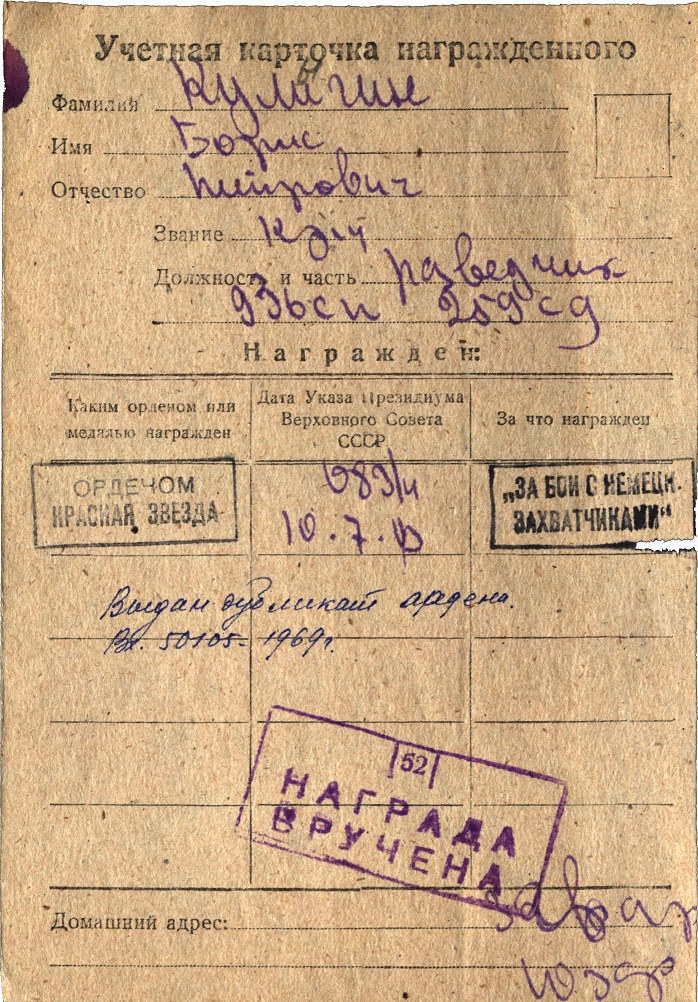 Учетная карточка награжденного
Фамилия Кулигин
Имя Борис
Отчество Петрович
Звание
Должность и часть раведчик
936 сп 259 сд
Награжден:
Каким орденом или медалью награжден
Дата Указа Президиума Верховного Совета СССР
За что награжден
ОРДЕНОМ
КРАСНАЯ ЗВЕЗДА
10.7.
„ЗА БОИ С НЕМЕЦК.
ЗАХВАТЧИКАМИ“
Выдан дубликат ордена.
50105 - 1969г.
52
НАГРАДА
ВРУЧЕНА
Домашний адрес: